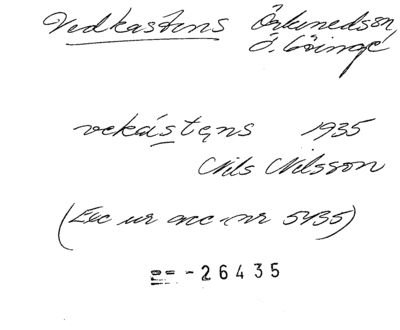 Vedkastens Örkenedsson,
Ö. Göinge
vekástęns 1935
Nils Nilsson
(Exc ur acc. nr 5435)
-26435